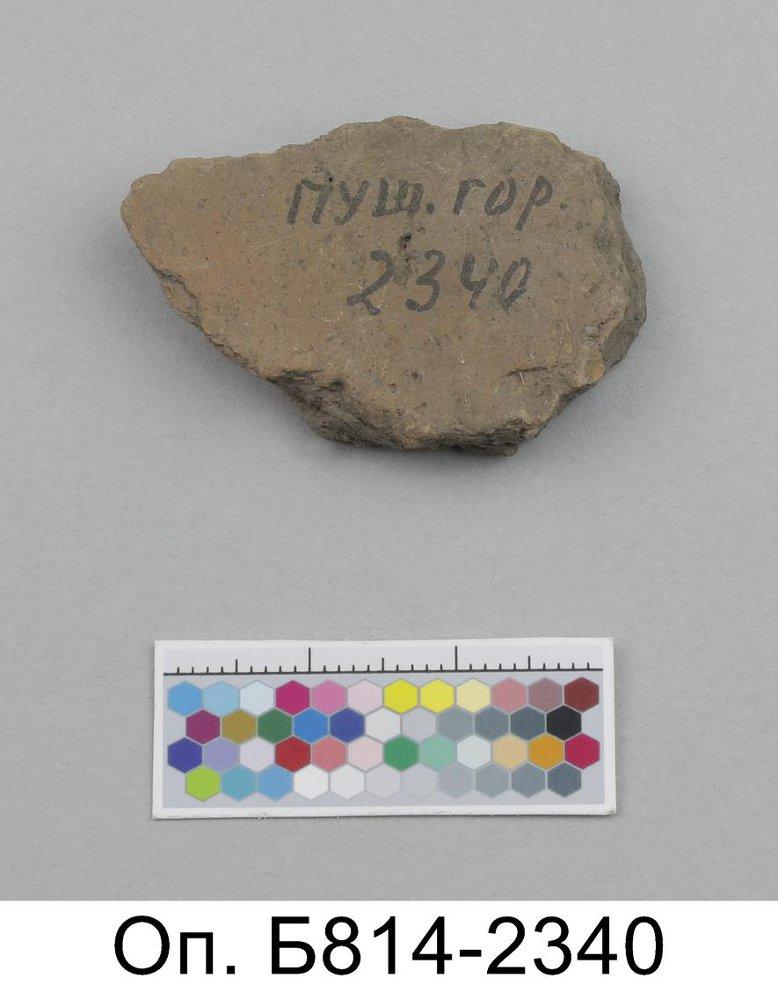 ПУШ. ГОР.
2340
Оп. Б814-2340